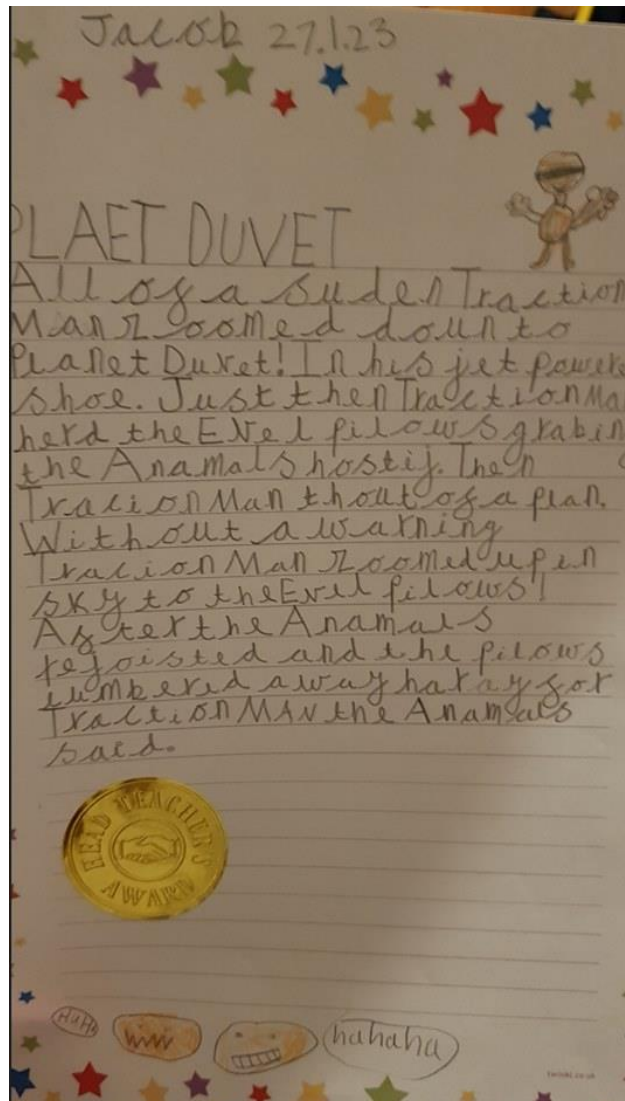 Jacob 27.1.23
PLAET DUVET
All of a suden Traction
Man Zoomed down to
Planet Duvet! In his jet power
shoe. Just then Traction Ma
herd the Evel pilows grabin
the Anamals hostij. Then
Tracion Man thout of a plan.
Without a warning
Tracion Man Zoomed up in
sky to the Evel pilows!
After the Anamals
rejoisted and the pilows
lumbered away haray for
Traction MAN the Anamals
saed.
HEAD TEACHER'S
AWARD
HaHa
hahaha
twinkl.co.uk